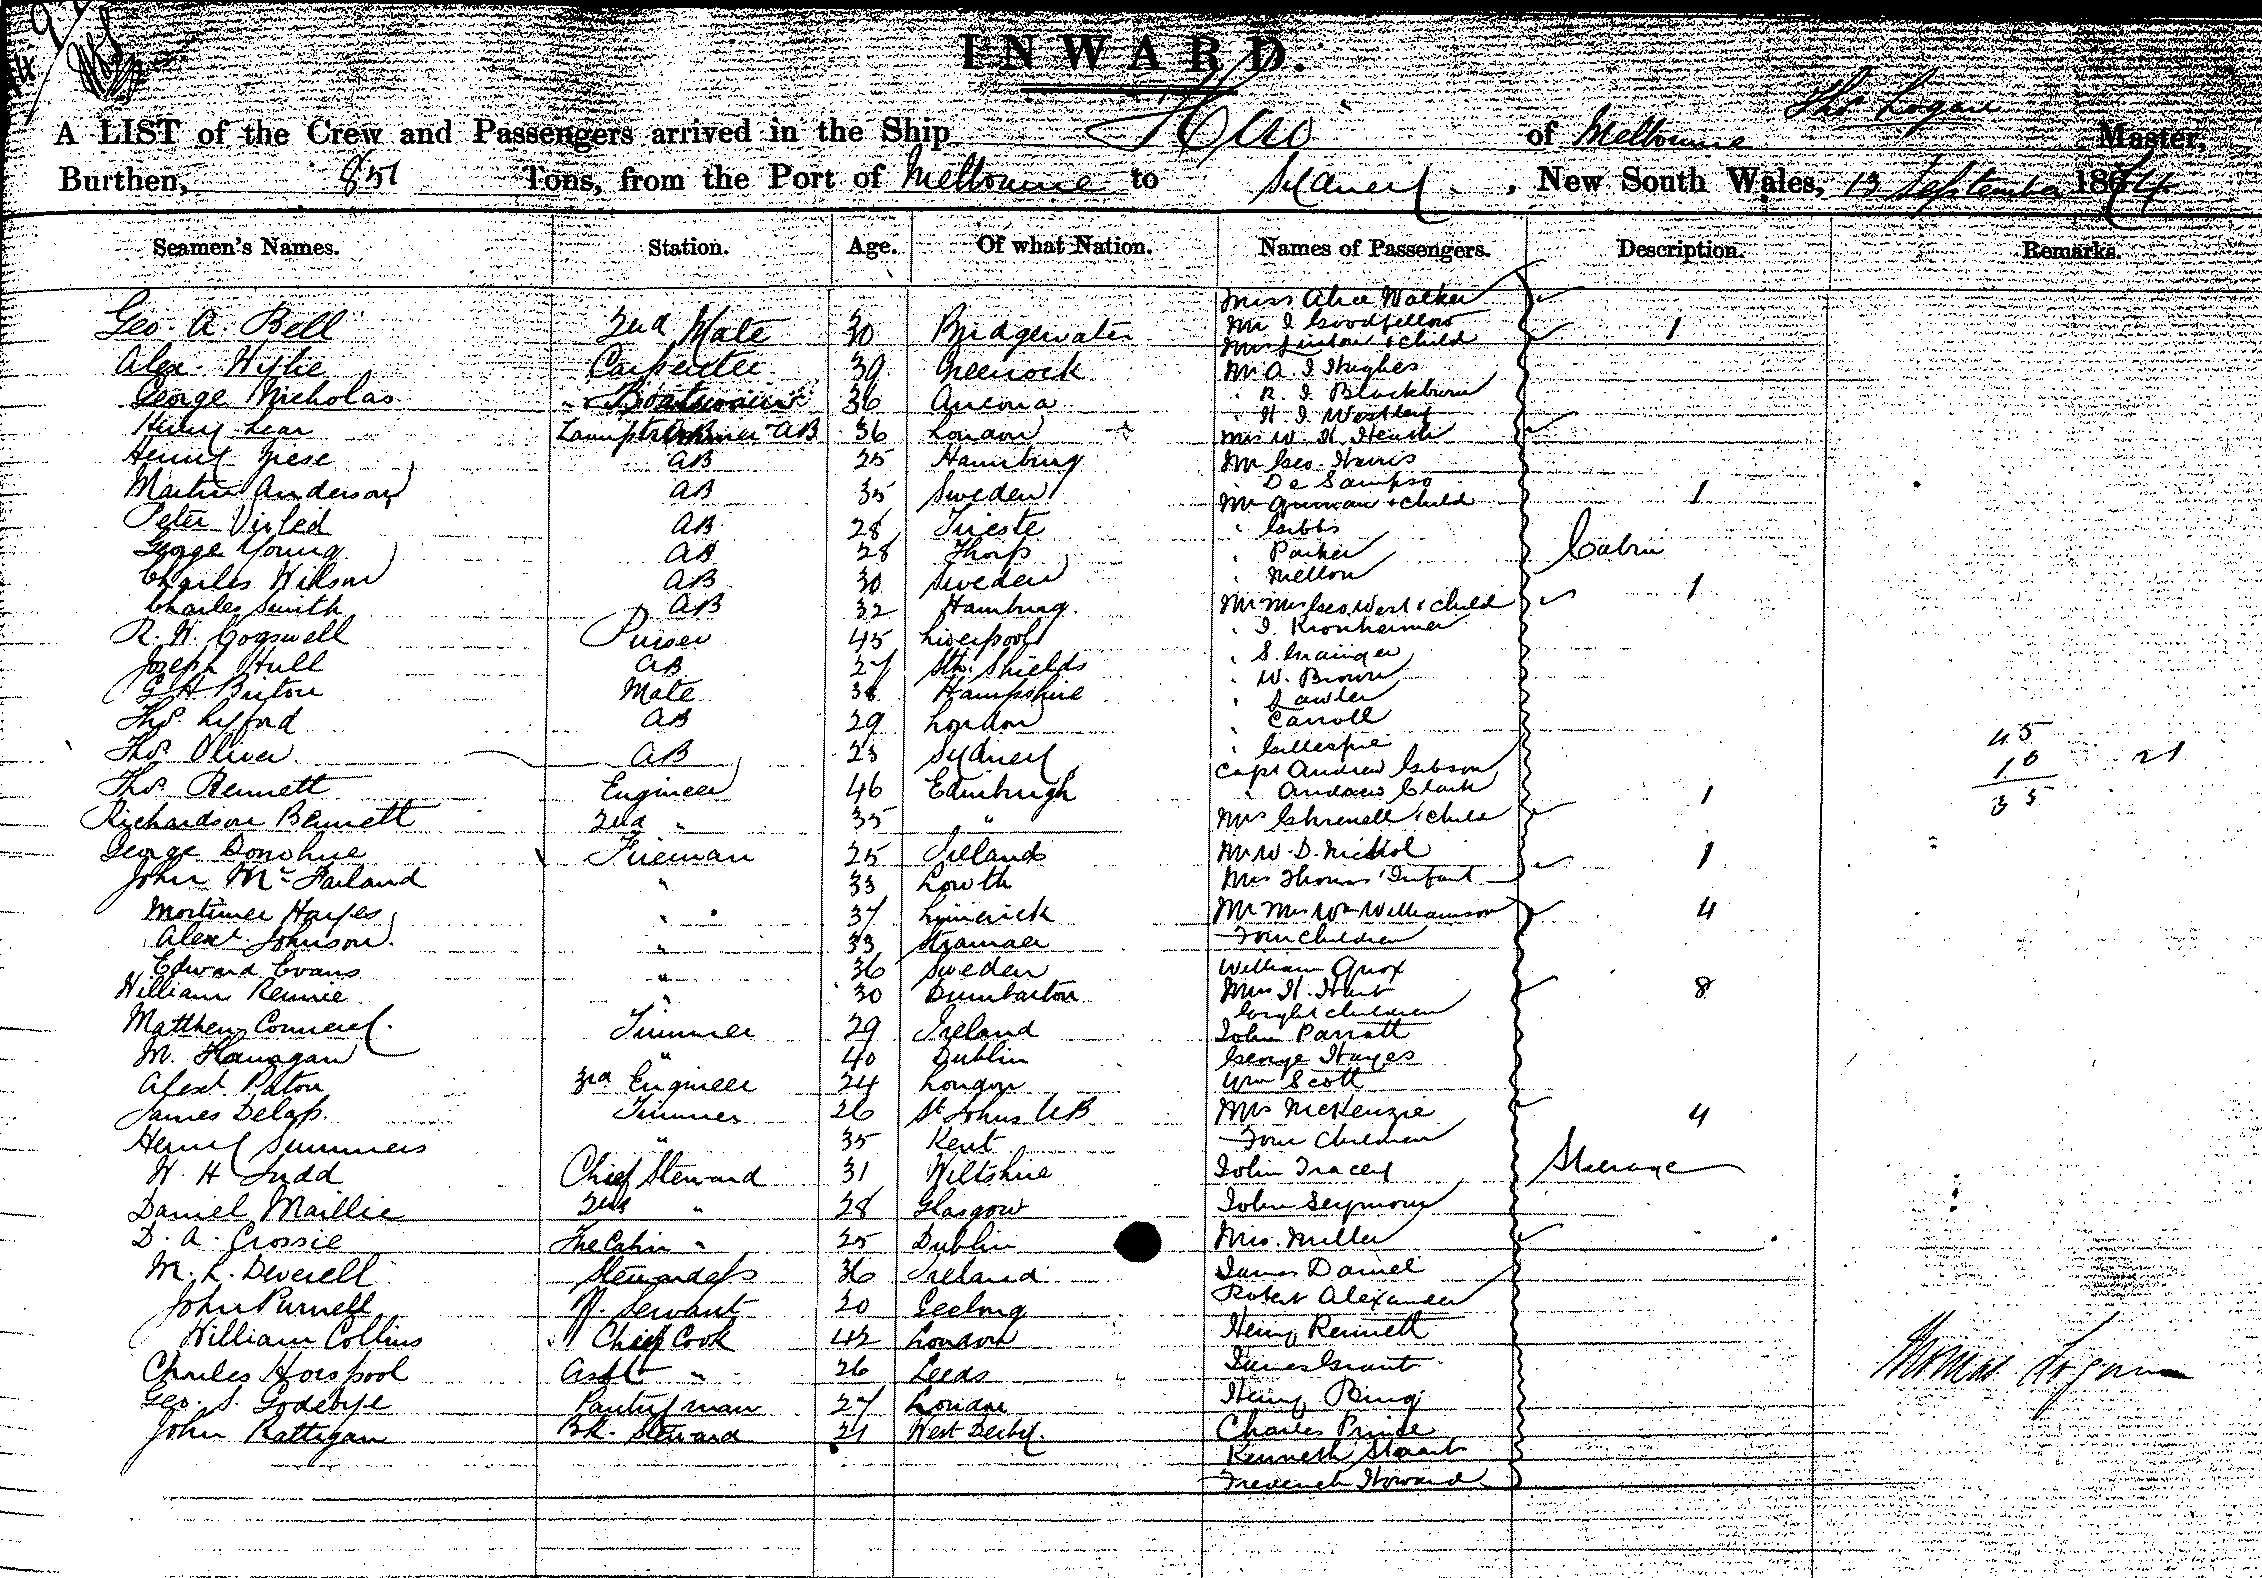 INWARD.
Thos Logan
A LIST of the Crew and Passengers arrived in the Ship Hero of Melbourne Master,
Burthen, 851 Tons, from the Port of Melbourne to Sydney, New South Wales, 13 September 1874
Seamen's Names. Station. Age. Of what Nation. Names of Passengers. Description. Remarks.
Miss Alice Walker
Geo. A. Bell 2nd Mate 30 Bridgewater Mr J Goodfellow 1
Mrs Linton & child
Alex. Wylie Carpenter 39 Greenock Mr A. J Hughes
George Nicholas Boatswain 36 Ancona " R. J. Blackburn
" H. J. Wostley
Henry Lear Lamptrimmer AB 36 London Mrs W. H. Heush
Henry Grese AB 25 Hamburg Mr Geo. Harris
" De Sampso
Martin Anderson AB 35 Sweden Mr Gunman & child 1
Peter Visled AB 28 Trieste " Gibbs
George Young AB 28 Thorp " Parker Cabin
Charles Wilson AB 30 Sweden " Mellon
Charles Smith AB 32 Hamburg. Mr Mrs Geo. West & child 1
R. H. Cogswell Purser 45 Liverpool " J. Kronheimer
Joseph Hull AB 27 Sth. Shields " S. Grainger
G H Burton Mate 38 Hampshire " W. Brown
" Lawler
Thos. Lyford AB 29 London " Carroll
Thos. Oliver AB 23 Sydney " Gillespie 45
Capt Andrew Gibson 10 21
Thos. Rennett Engineer 46 Edinburgh " Andrews Clark 35
Richardson Bennett 2nd " 35 " Mrs Ghrenell & child 1
George Donohue Fireman 25 Ireland Mr W. D. Nichol
John McFarland " 33 Louth Mrs Thomas & Infant 1
Mortimer Hayes " 37 Limerick Mr Mrs Wm Williamson 4
Alext. Johnson " 33 Stranraer Four children
Edward Evans " 36 Sweden William Quox
William Rennie " 30 Dumbarton Mrs H. Hunt 8
Eight children
Matthew Connerey Trimmer 29 Ireland John Parrott
M. Flanagan " 40 Dublin George Hayes
Alext. Paton 3rd Engineer 24 London Wm Scott
James Delap. Trimmer 26 St Johns NB Mrs McKenzie 4
Henry Summers " 35 Kent Four Children
W. H Judd Chief Steward 31 Wiltshire John Tracey Steerage
Daniel Maillie 2nd " 28 Glasgow John Seymour
D. A. Grossie Fre Cabin " 25 Dublin Mrs. Miller
M. L. Deverell Stewardess 36 Ireland James Daniel
John Purnell M. Servant 20 Geelong Robert Alexander
William Collins Chief Cook 42 London Henry Rennett
Charles Horspool Asst " 26 Leeds James Grant Thomas Logan
Geo. S. Godebye Pantryman 27 London Henry Ring
John Rattigan Bk. Steward 21 West Derby. Charles Prince
Kenneth Stuart
Frederick Howard